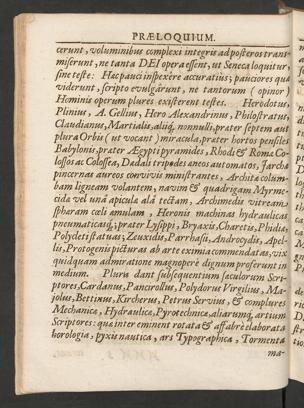 PRÆLOQUIUM.
cerunt, voluminibus complexi integris ad posteros trans-
miserunt, ne tanta DEI opera essent, ut Seneca loquitur,
sine teste: Hæc pauci inspexere accuratius; pauciores quæ
viderunt, scripto evulgârunt, ne tantorum (opinor)
Hominis operum plures existerent testes. Herodotus,
Plinius, A. Gellius, Hero Alexandrinus, Philostratus,
Claudianus, Martialis, aliiq́; nonnulli, præter septem aut
plura Orbis (ut vocant) miracula, præter hortos pensiles
Babylonis, præter Ægypti pyramides, Rhodi & Romæ Co-
lossos ac Colossea, Dædali tripodes aneos automatos, Jarchæ
pincernas aureos convivis ministrantes, Architæ colum-
bam ligneam volantem, navim & quadrigam Myrme-
cidæ vel unâ apiculæ alâ tectam, Archimedis vitream
sphæram cœli æmulam, Heronis machinas hydraulicas
pneumaticasq́; præter Lysippi, Bryaxis, Charetis, Phidiæ,
Polycleti statuas; Zeuxidis, Parrhasii, Androcydis, Apel-
lis, Protogenis picturas ab arte eximia commendatas, vix
quidquam admiratione magnoperè dignum proferunt in
medium. Pluria dant subsequentium sæculorum Scri-
ptores, Cardanus, Pancirollus, Polydorus Virgilius, Ma-
jolus, Bettinus, Kircherus, Petrus Servius, & complures
Mechanicæ, Hydraulicæ, Pyrotechnicæ, aliarumq́; artium
Scriptores: quæ inter eminent rotata & affabrè elaborata
horologia, pyxis nautica, ars Typographica, Tormenta
ma-